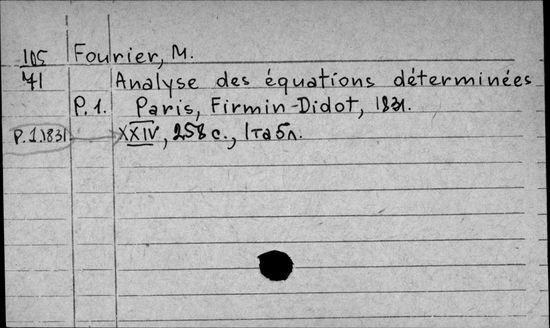 105 Fourier, M.
71 Analyse des équations déterminées
P.1. Paris, Firmin-Didot, 1831.
P.1.1831. XXIV, 258 с., 1 табл.